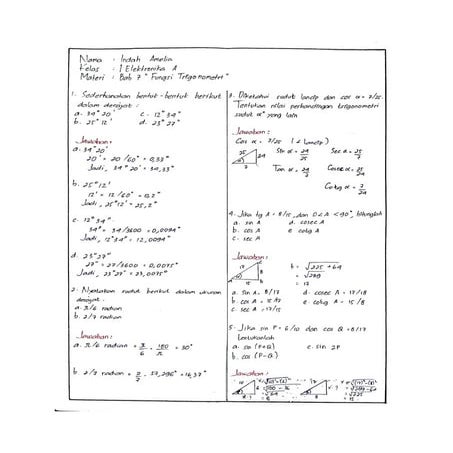 Nama : Indah Amelia
Kelas : 1 Elektronika A
Materi : Bab 7 " Fungsi Trigonometri"
1. Sederhanakan bentuk-bentuk berikut
dalam derajat :
a. 39° 20'    c. 12° 34"
b. 25° 12'    d. 23° 27"
Jawaban :
a. 39° 20'
20' = 20/60° = 0,33°
Jadi, 39° 20' = 39,33°
b. 25° 12'
12' = 12/60° = 0,2°
Jadi, 25° 12' = 25,2°
c. 12° 34"
34" = 34/3600 = 0,0094°
Jadi, 12° 34" = 12,0094°
d. 23° 27"
27" = 27/3600 = 0,0075°
Jadi, 23° 27" = 23,0075°
2. Nyatakan sudut berikut dalam ukuran
derajat
a. π/6 radian
b. 2/7 radian
Jawaban :
a. π/6 radian = π/6 · 180/π = 30°
b. 2/7 radian = 2/7 · 57,296° = 16,37°
3. Diketahui sudut lancip dan cos α = 7/25
Tentukan nilai perbandingan trigonometri
sudut α° yang lain
Jawaban :
Cos α = 7/25 (α lancip)
25 24 7
Sin α = 24/25    Sec α = 25/7
Tan α = 24/7    Cosec α = 25/24
Cotg α = 7/24
4. Jika tg A = 8/15, dan 0<A <90°, hitunglah
a. sin A    d. cosec A
b. cos A    e. cotg A
c. sec A
Jawaban :
17 8 15
h = √225 + 64
= √289
= 17
a. sin A = 8/17    d. cosec A = 17/8
b. cos A = 15/17    e. cotg A = 15/8
c. sec A = 17/15
5. Jika sin P = 6/10 dan cos Q = 8/17
tentukanlah
a. sin (P+Q)    c. sin 2P
b. cos (P-Q)
Jawaban :